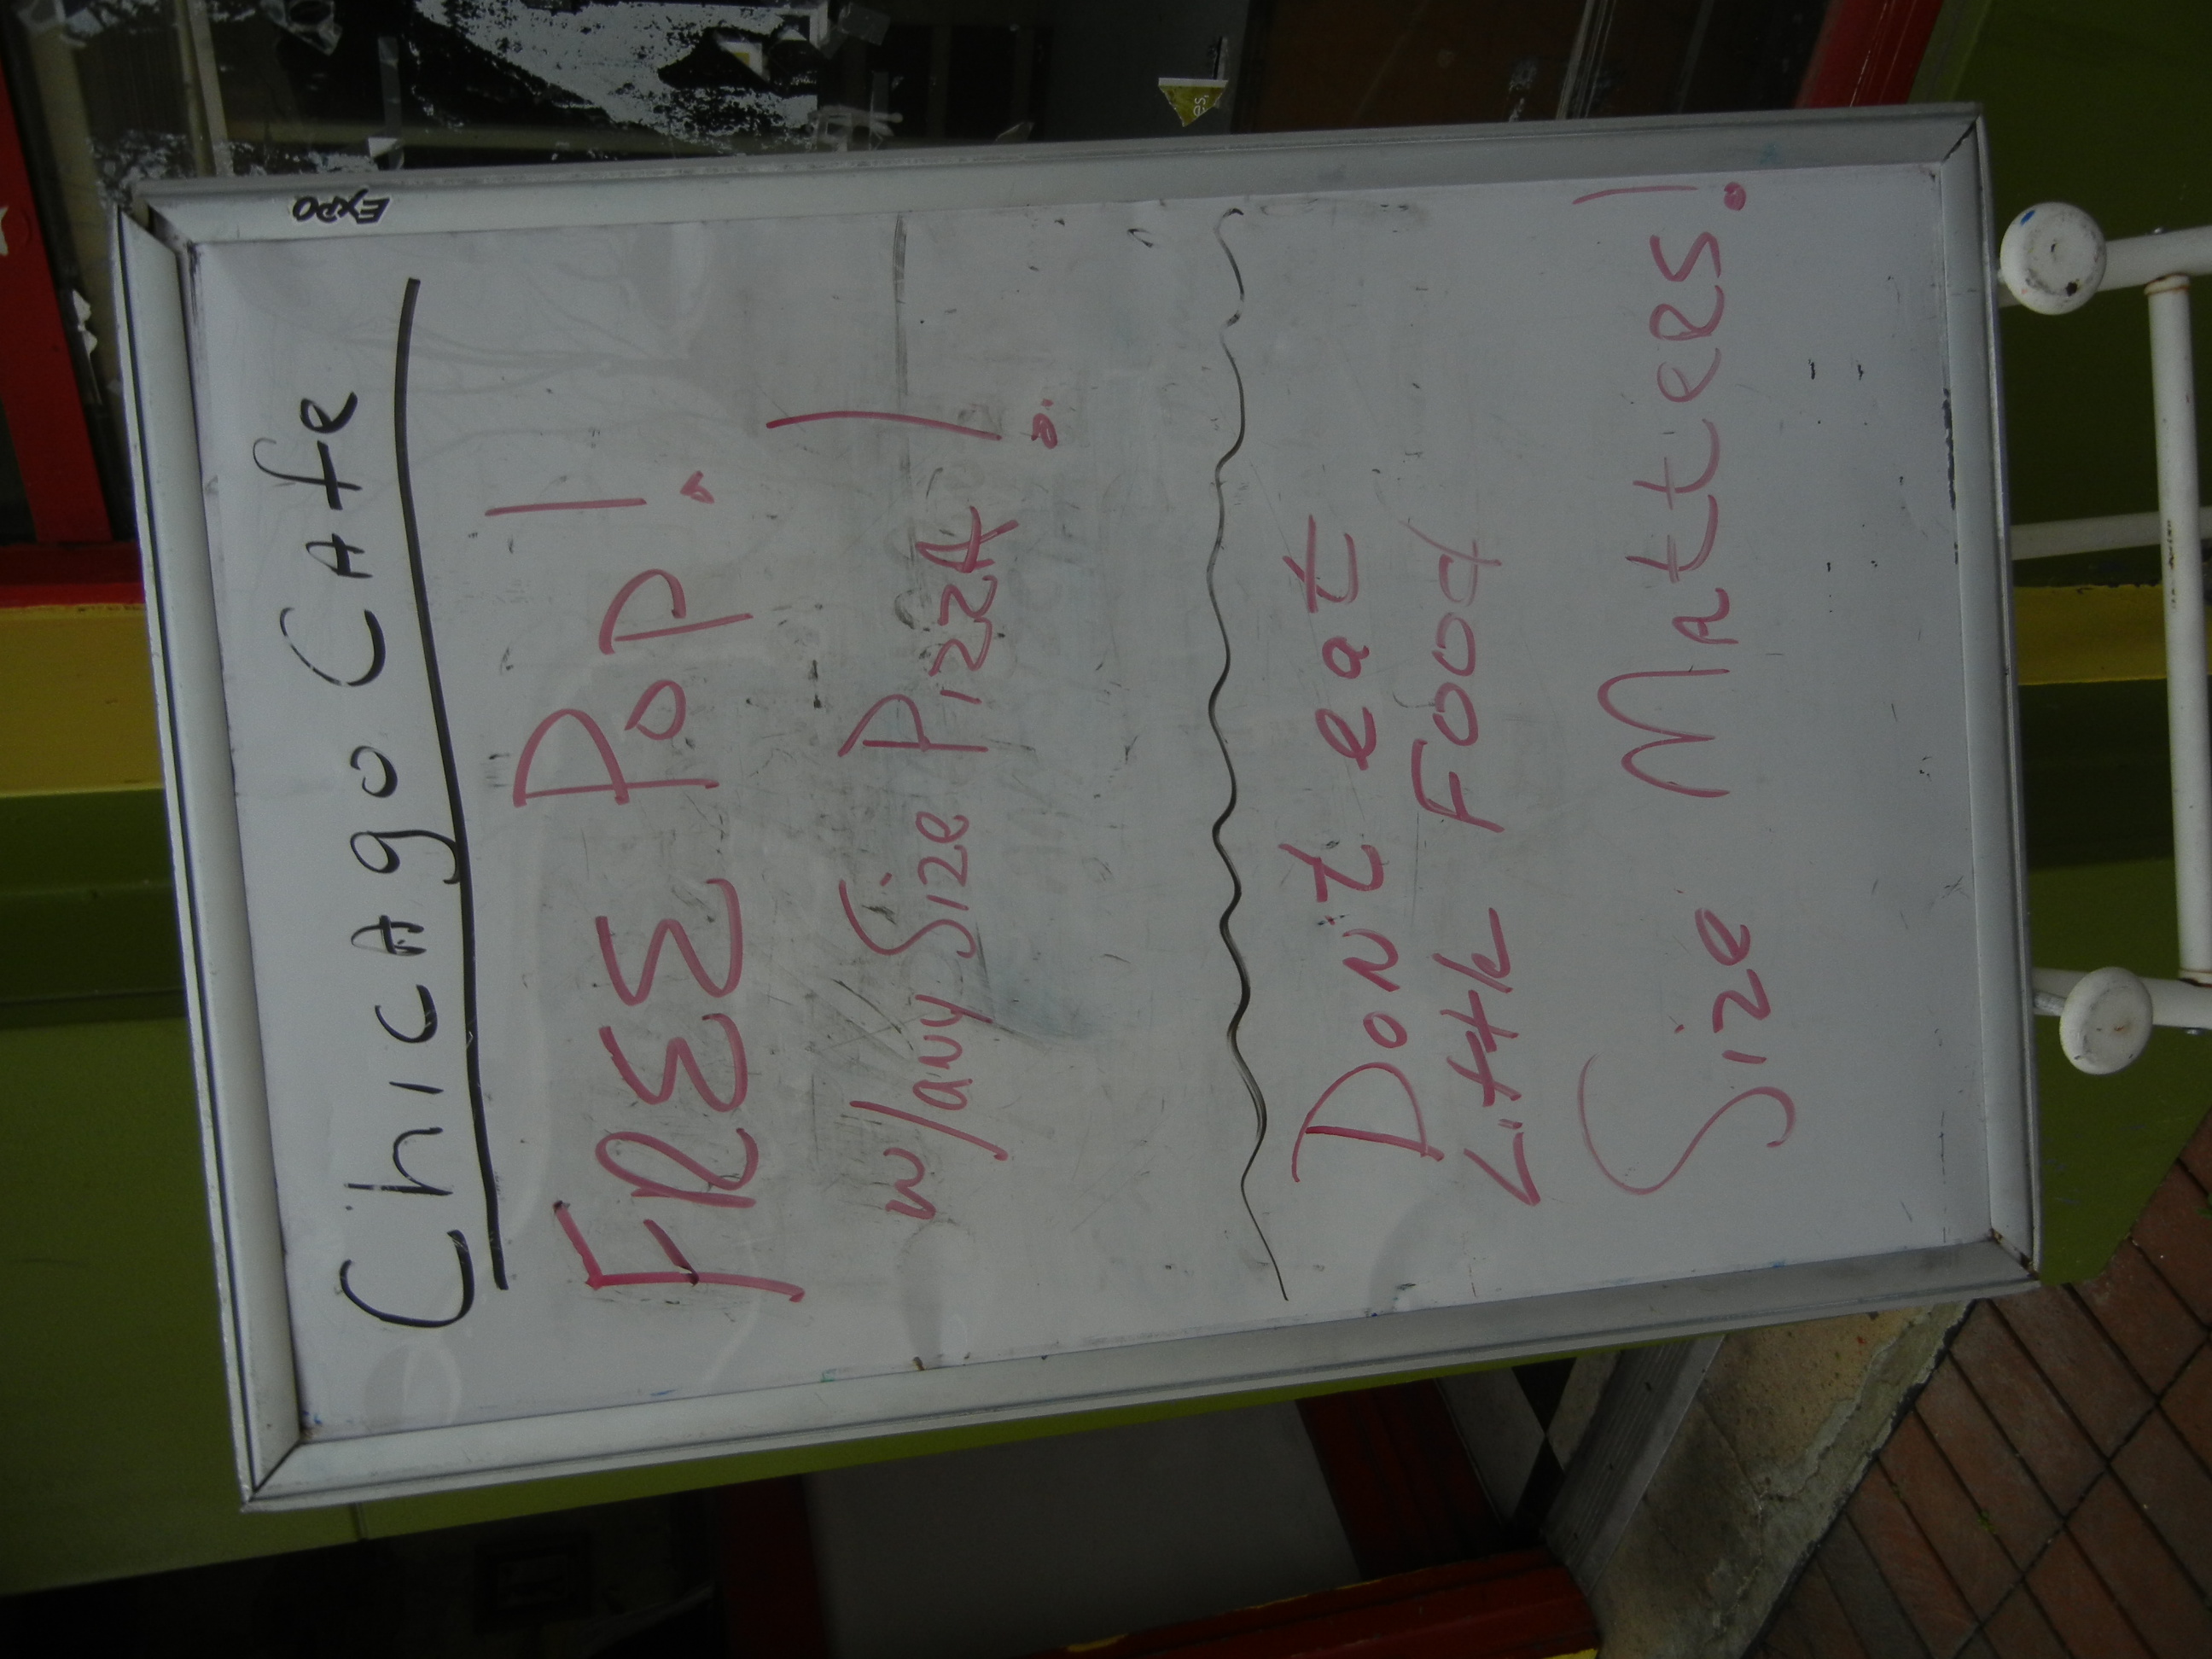 EXPO
Chicago Cafe
FREE Pop!
w/any Size Pizza!
Dont eat
Little Food
Size Matters!
es,